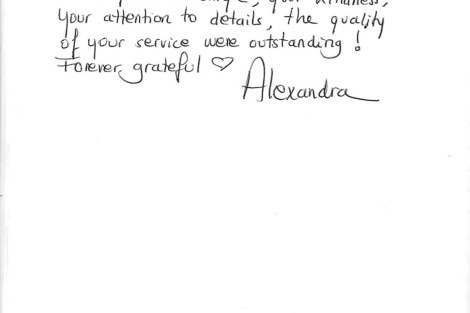 your kindness,
your attention to details, the quality
of your service were outstanding !
Forever grateful ♡
Alexandra